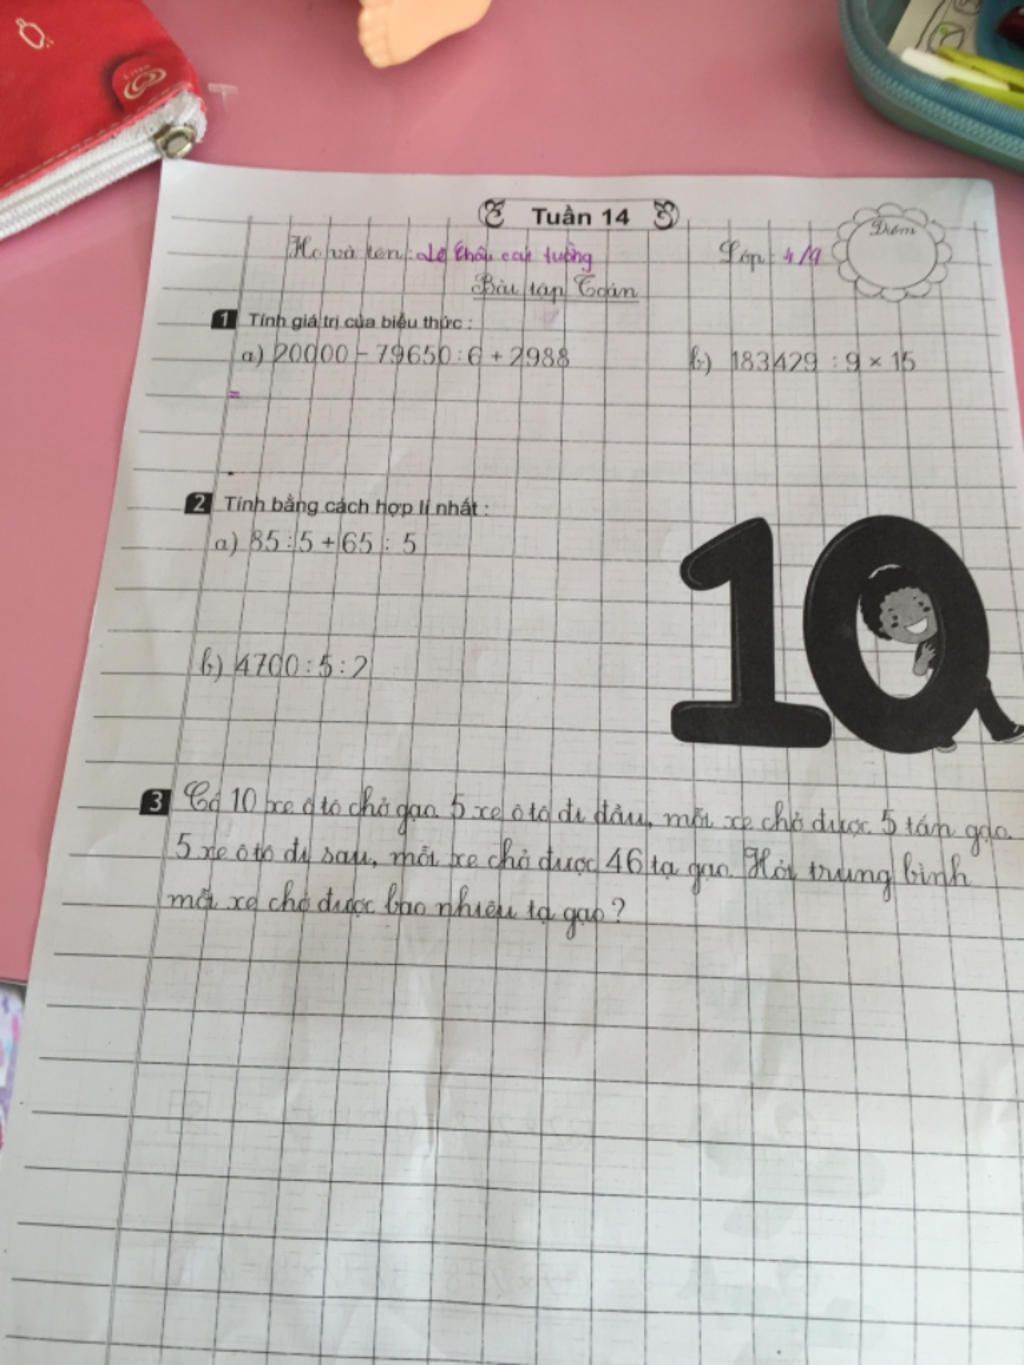 Tuần 14
Họ và tên: Lê Châu cát tường
Lớp: 4/9
Điểm
Bài tập Toán
1 Tính giá trị của biểu thức :
a) 20000 - 79650 : 6 + 2988
b) 183429 : 9 × 15
=
2 Tính bằng cách hợp lí nhất :
a) 85 : 5 + 65 : 5
b) 4700 : 5 : 2
10
3 Có 10 xe ô tô chở gạo. 5 xe ô tô đi đầu, mỗi xe chở được 5 tấn gạo.
5 xe ô tô đi sau, mỗi xe chở được 46 tạ gạo. Hỏi trung bình
mỗi xe chở được bao nhiêu tạ gạo?